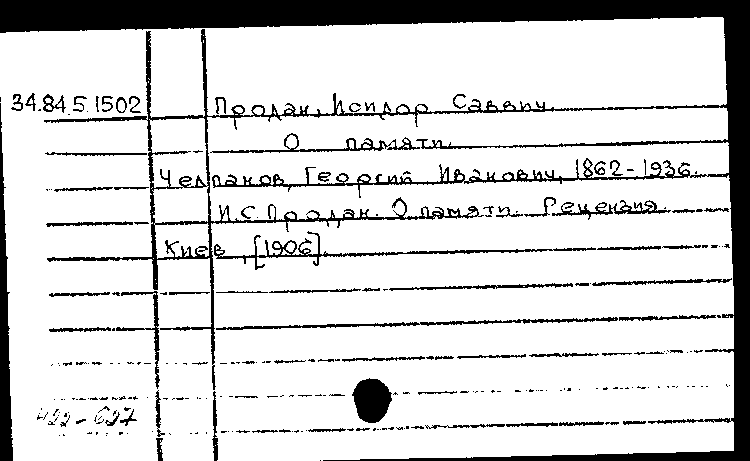 34.84.5.1502 Продан, Исидор Саввич.
О памяти.
Челпанов, Георгий Иванович, 1862-1936.
И.С. Продан. О памяти. Рецензия.
Киев, [1906].
422-627